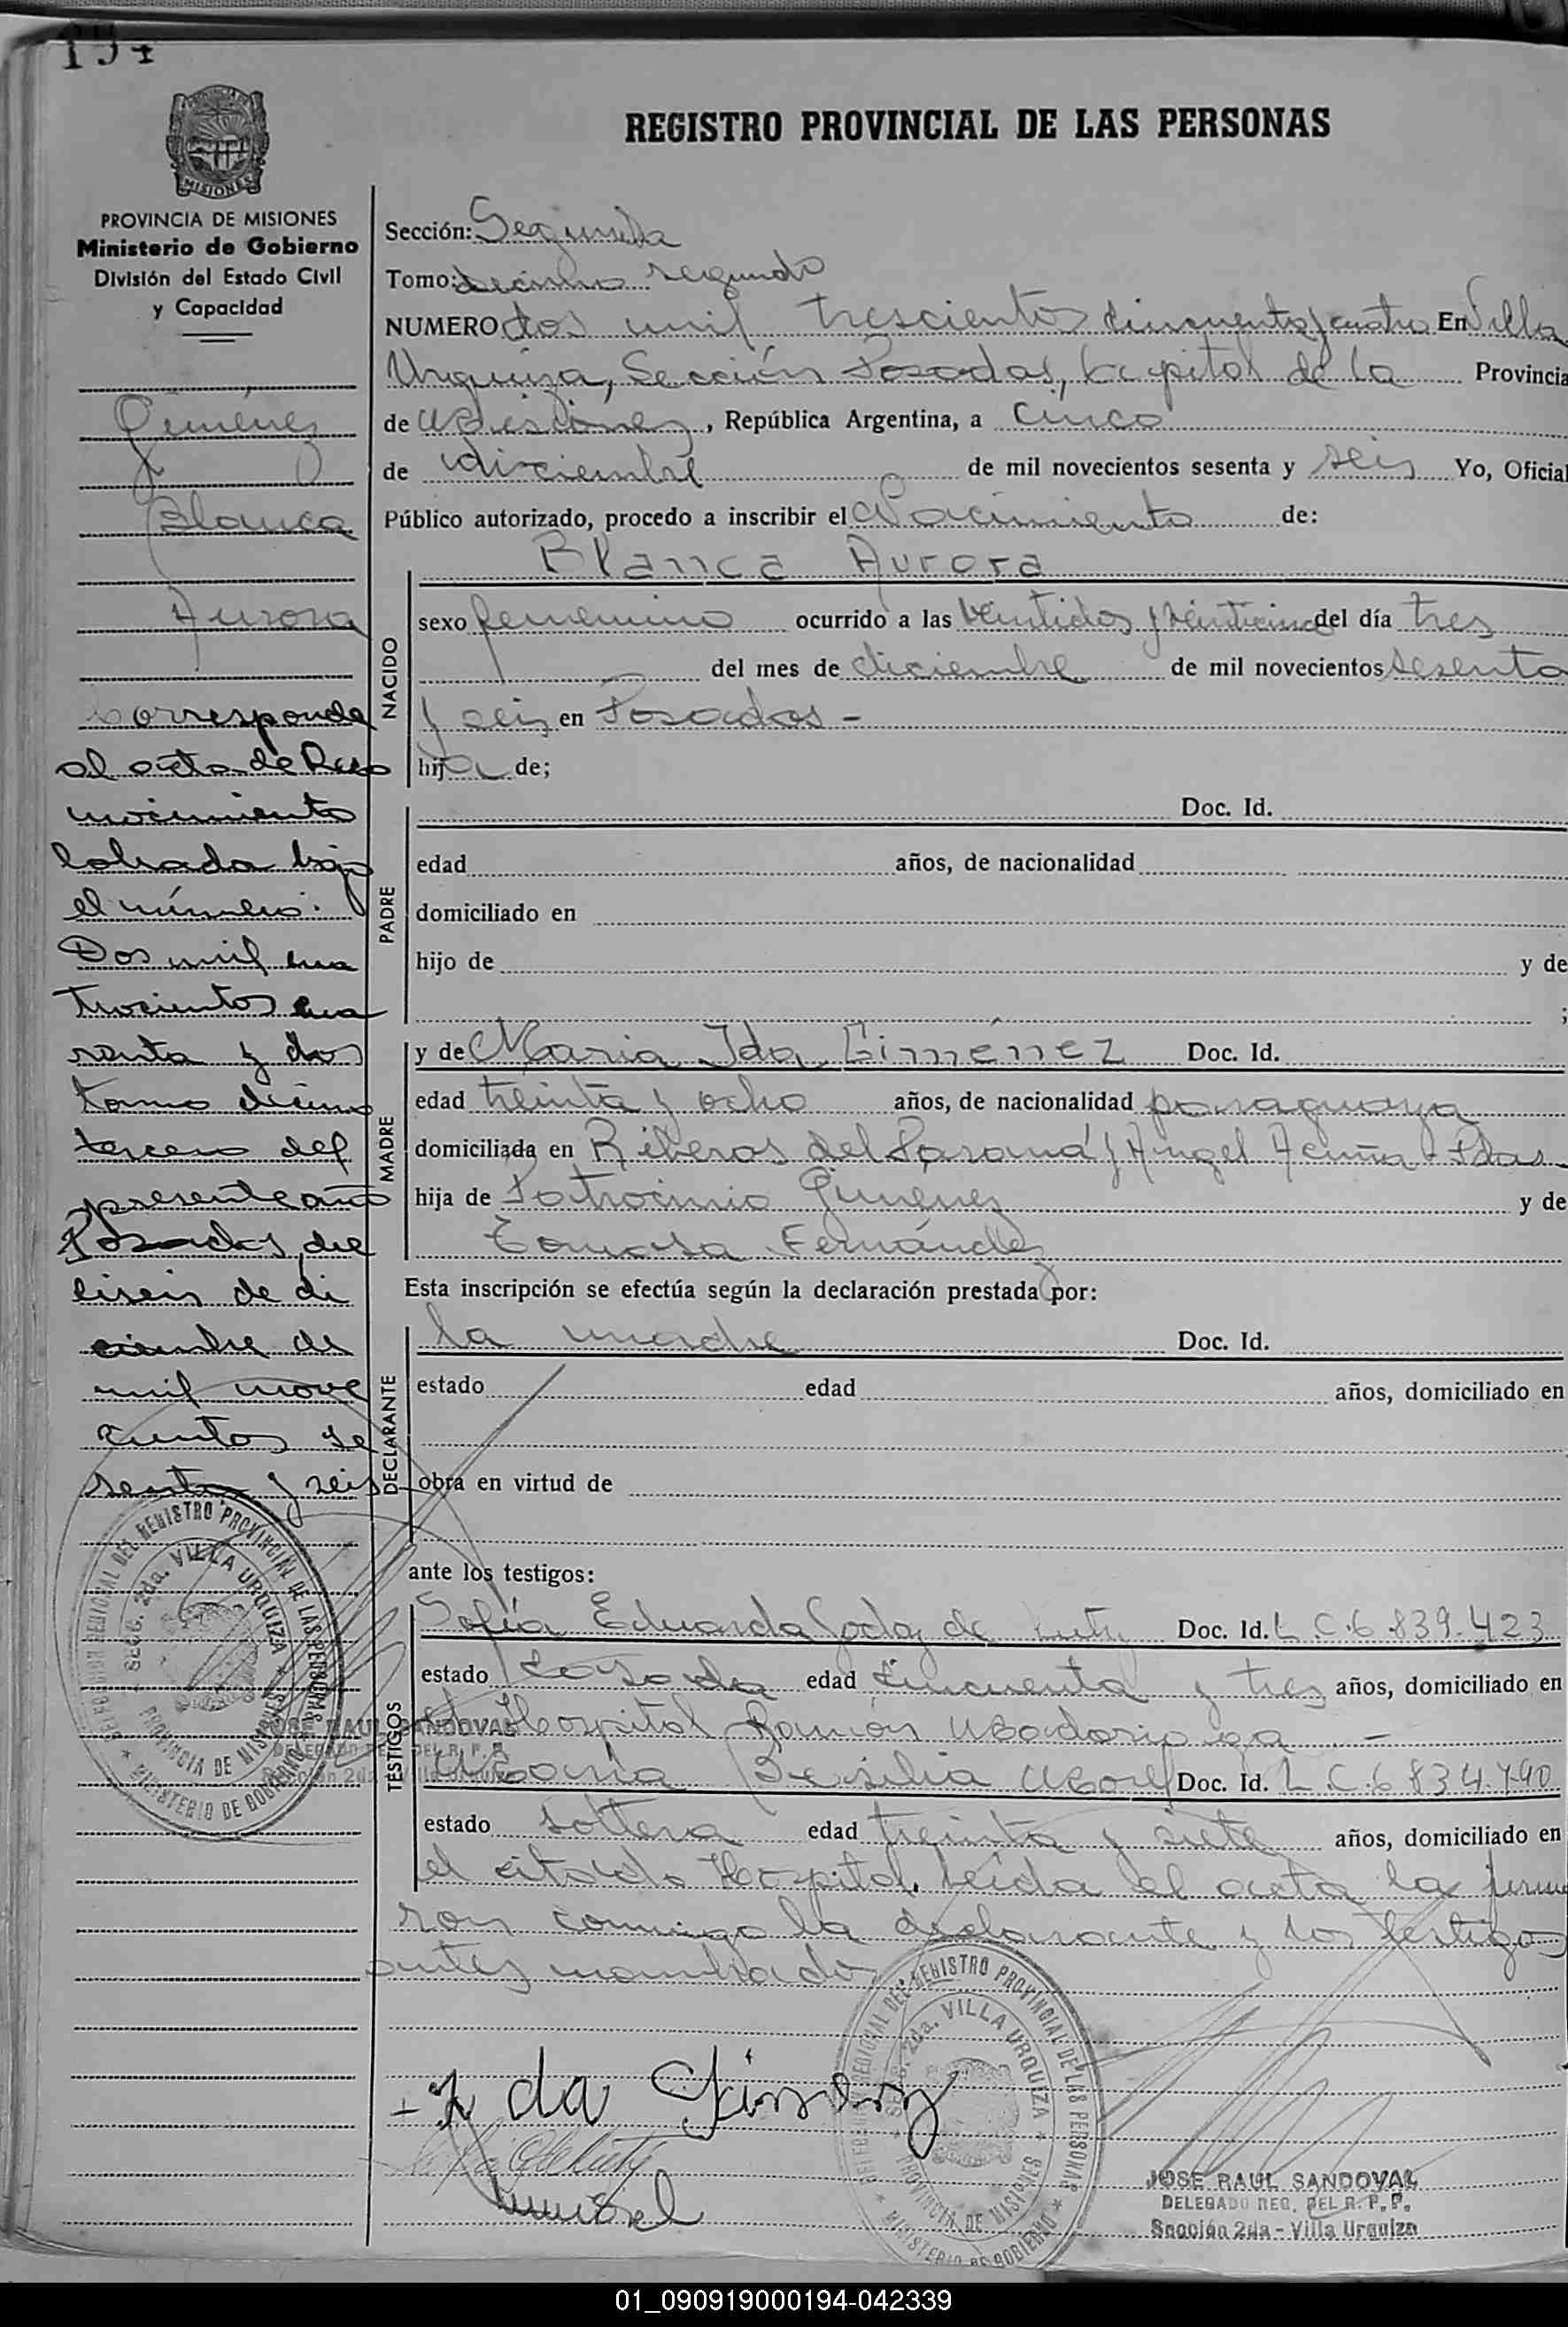 194
REGISTRO PROVINCIAL DE LAS PERSONAS
MISIONES
PROVINCIA DE MISIONES
Ministerio de Gobierno
División del Estado Civil
y Capacidad
Giménez
Blanca
Aurora
corresponde
al acta de Reco
nocimiento
labrada bajo
el número:
Dos mil cua
trocientos cua
renta y dos
tomo décimo
tercero del
presente año
Posadas, die
ciseis de di
ciembre de
mil nove
cientos se
senta y seis
Sección: Segunda
Tomo: décimo segundo
NUMERO dos mil trescientos cincuenta y cuatro En Villa
Urquiza, Sección Posadas, Capital de la Provincia
de Misiones, República Argentina, a cinco
de diciembre de mil novecientos sesenta y seis Yo, Oficial
Público autorizado, procedo a inscribir el Nacimiento de:
Blanca Aurora
NACIDO
sexo femenino ocurrido a las veintidos y veinticinco del día tres
del mes de diciembre de mil novecientos sesenta
y seis en Posadas -
hija de;
PADRE
Doc. Id.
edad años, de nacionalidad
domiciliado en
hijo de y de
;
MADRE
y de Maria Ida Giménez Doc. Id.
edad treinta y ocho años, de nacionalidad paraguaya
domiciliada en Riberas del Paraná y Angel Acuña - Pdas.
hija de Patrocinio Giménez y de
Tomasa Fernández
Esta inscripción se efectúa según la declaración prestada por:
DECLARANTE
la madre Doc. Id.
estado edad años, domiciliado en
obra en virtud de
ante los testigos:
TESTIGOS
Sofía Eduarda Godoy de Doc. Id. L.C. 6.839.423
estado casada edad cincuenta y tres años, domiciliado en
el Hospital Ramón Madariaga -
María Basilia Morel Doc. Id. L.C. 6.834.790
estado soltera edad treinta y siete años, domiciliado en
el citado Hospital. Leída el acta la firma
ron conmigo la declarante y los testigos
antes nombrados
DELEGACION REGIONAL DEL REGISTRO PROVINCIAL DE LAS PERSONAS
SECC. 2da. VILLA URQUIZA
PROVINCIA DE MISIONES
MINISTERIO DE GOBIERNO
JOSE RAUL SANDOVAL
DELEGADO REG. DEL R. P. P.
Sección 2da - Villa Urquiza
Ida Gimenez
Morel
REGIONAL DEL REGISTRO PROVINCIAL DE LAS PERSONAS
SECC. 2da. VILLA URQUIZA
PROVINCIA DE MISIONES
MINISTERIO DE GOBIERNO
JOSE RAUL SANDOVAL
DELEGADO REG. DEL R. P. P.
Sección 2da - Villa Urquiza
01_090919000194-042339